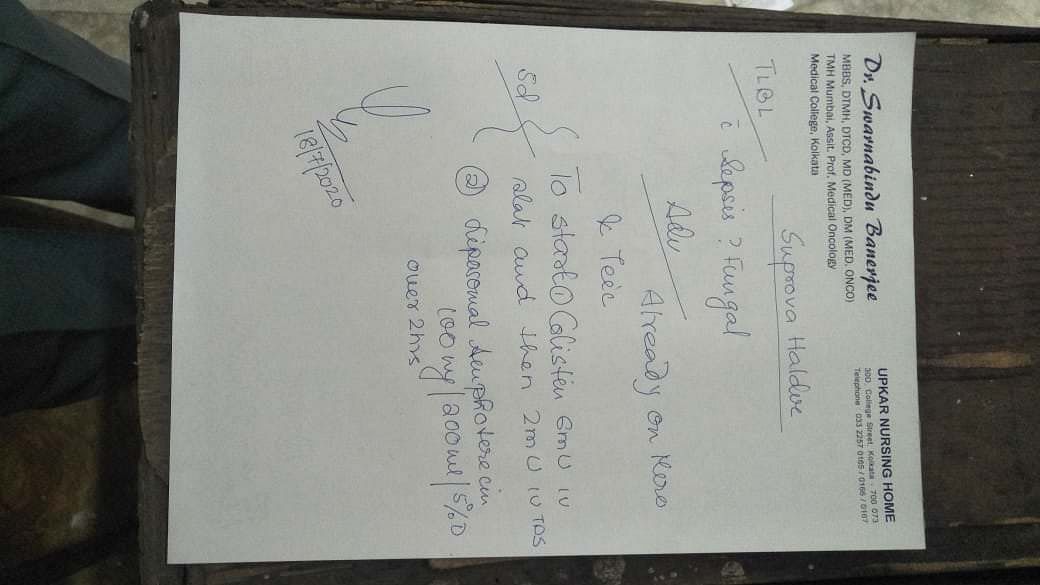 Dr. Swarnabindu Banerjee
MBBS, DTMH, DTCD, MD (MED), DM (MED. ONCO)
TMH Mumbai, Assit. Prof. Medical Oncology
Medical College, Kolkata
UPKAR NURSING HOME
30D, College Street, Kolkata - 700 073
Telephone : 033 2257 0165 / 0166 / 0167
Suprova Halder
TLBL
c̄ Sepsis ? Fungal
Adv
Already on Mero
& Teic
To start ① Colistin 6mU IV
stat and then 2mU IV TDS
Sd
② Liposomal Amphoterecin
100mg/200ml/5%D
over 2hrs
18/7/2020